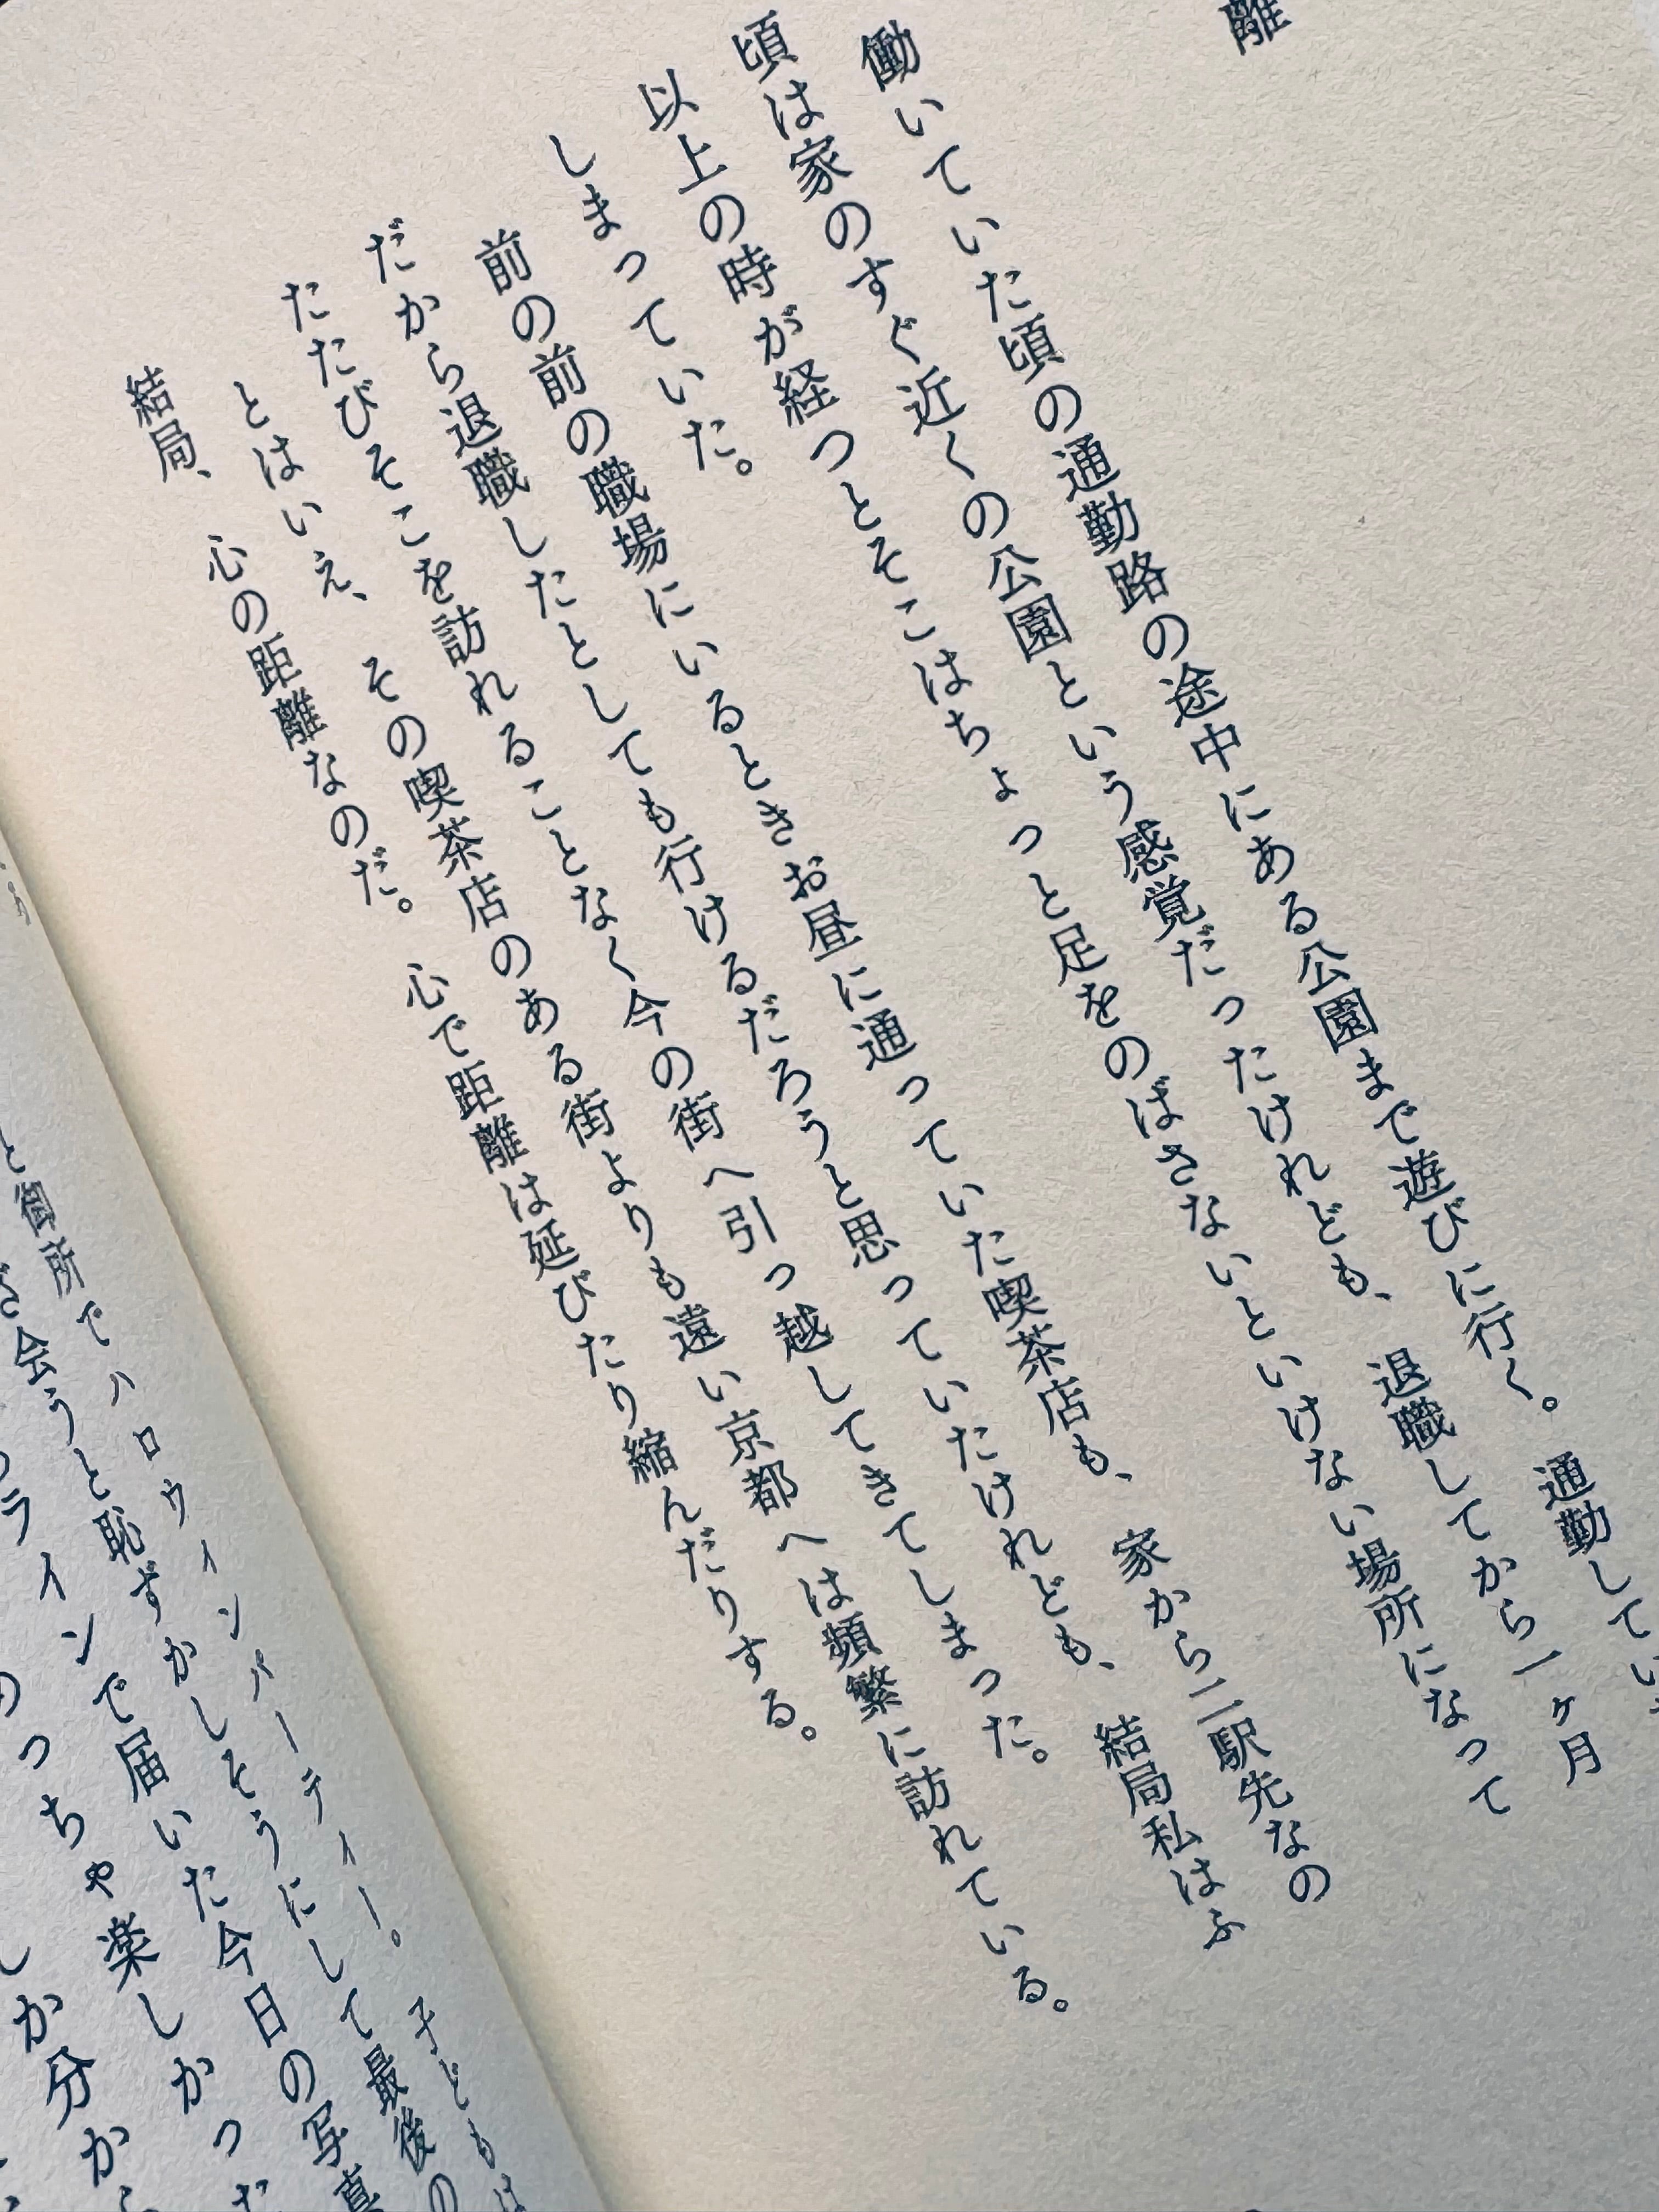 離
働いていた頃の通勤路の途中にある公園まで遊びに行く。通勤してい
頃は家のすぐ近くの公園という感覚だったけれども、退職してから一ヶ月
以上の時が経つとそこはちょっと足をのばさないといけない場所になって
しまっていた。
前の前の職場にいるときお昼に通っていた喫茶店も、家から二駅先なの
だから退職したとしても行けるだろうと思っていたけれども、結局私はふ
たたびそこを訪れることなく今の街へ引っ越してきてしまった。
とはいえ、その喫茶店のある街よりも遠い京都へは頻繁に訪れている。
結局、心の距離なのだ。心で距離は延びたり縮んだりする。
子どもは
と御所でハロウィンパーティー。
会うと恥ずかしそうにして最後の
ラインで届いた今日の写真
っちゃ楽しかった
しか分か